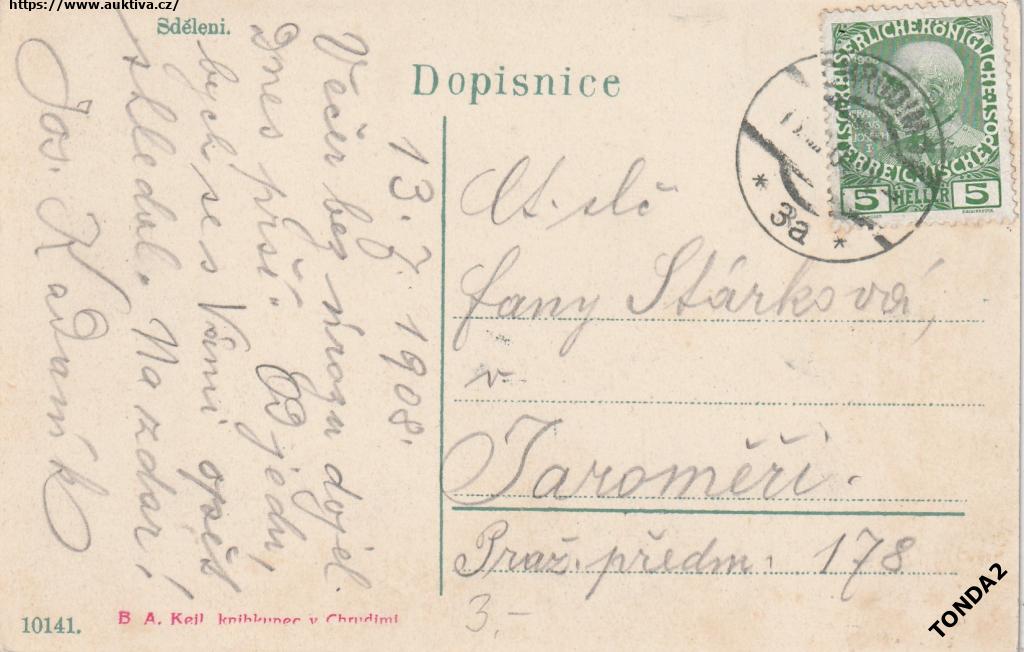 https://www.auktiva.cz/
Sdělení.
Dopisnice
13. 7. 1908.
Večer bez úrazu dojel.
Dnes prší. Odjedu,
bych se s Vámi opět
shledal. Na zdar!
Jos. Kadaník
Ct. slč
Fany Stárková,
v
Jaroměři.
Praž. předm. 178
3.-
CHRUDIM
* 3a *
KAISERLICHE KÖNIGLICHE
ÖSTERREICHISCHE POST
5 HELLER 5
10141.
B. A. Kejl, knihkupec v Chrudimi
TONDA2